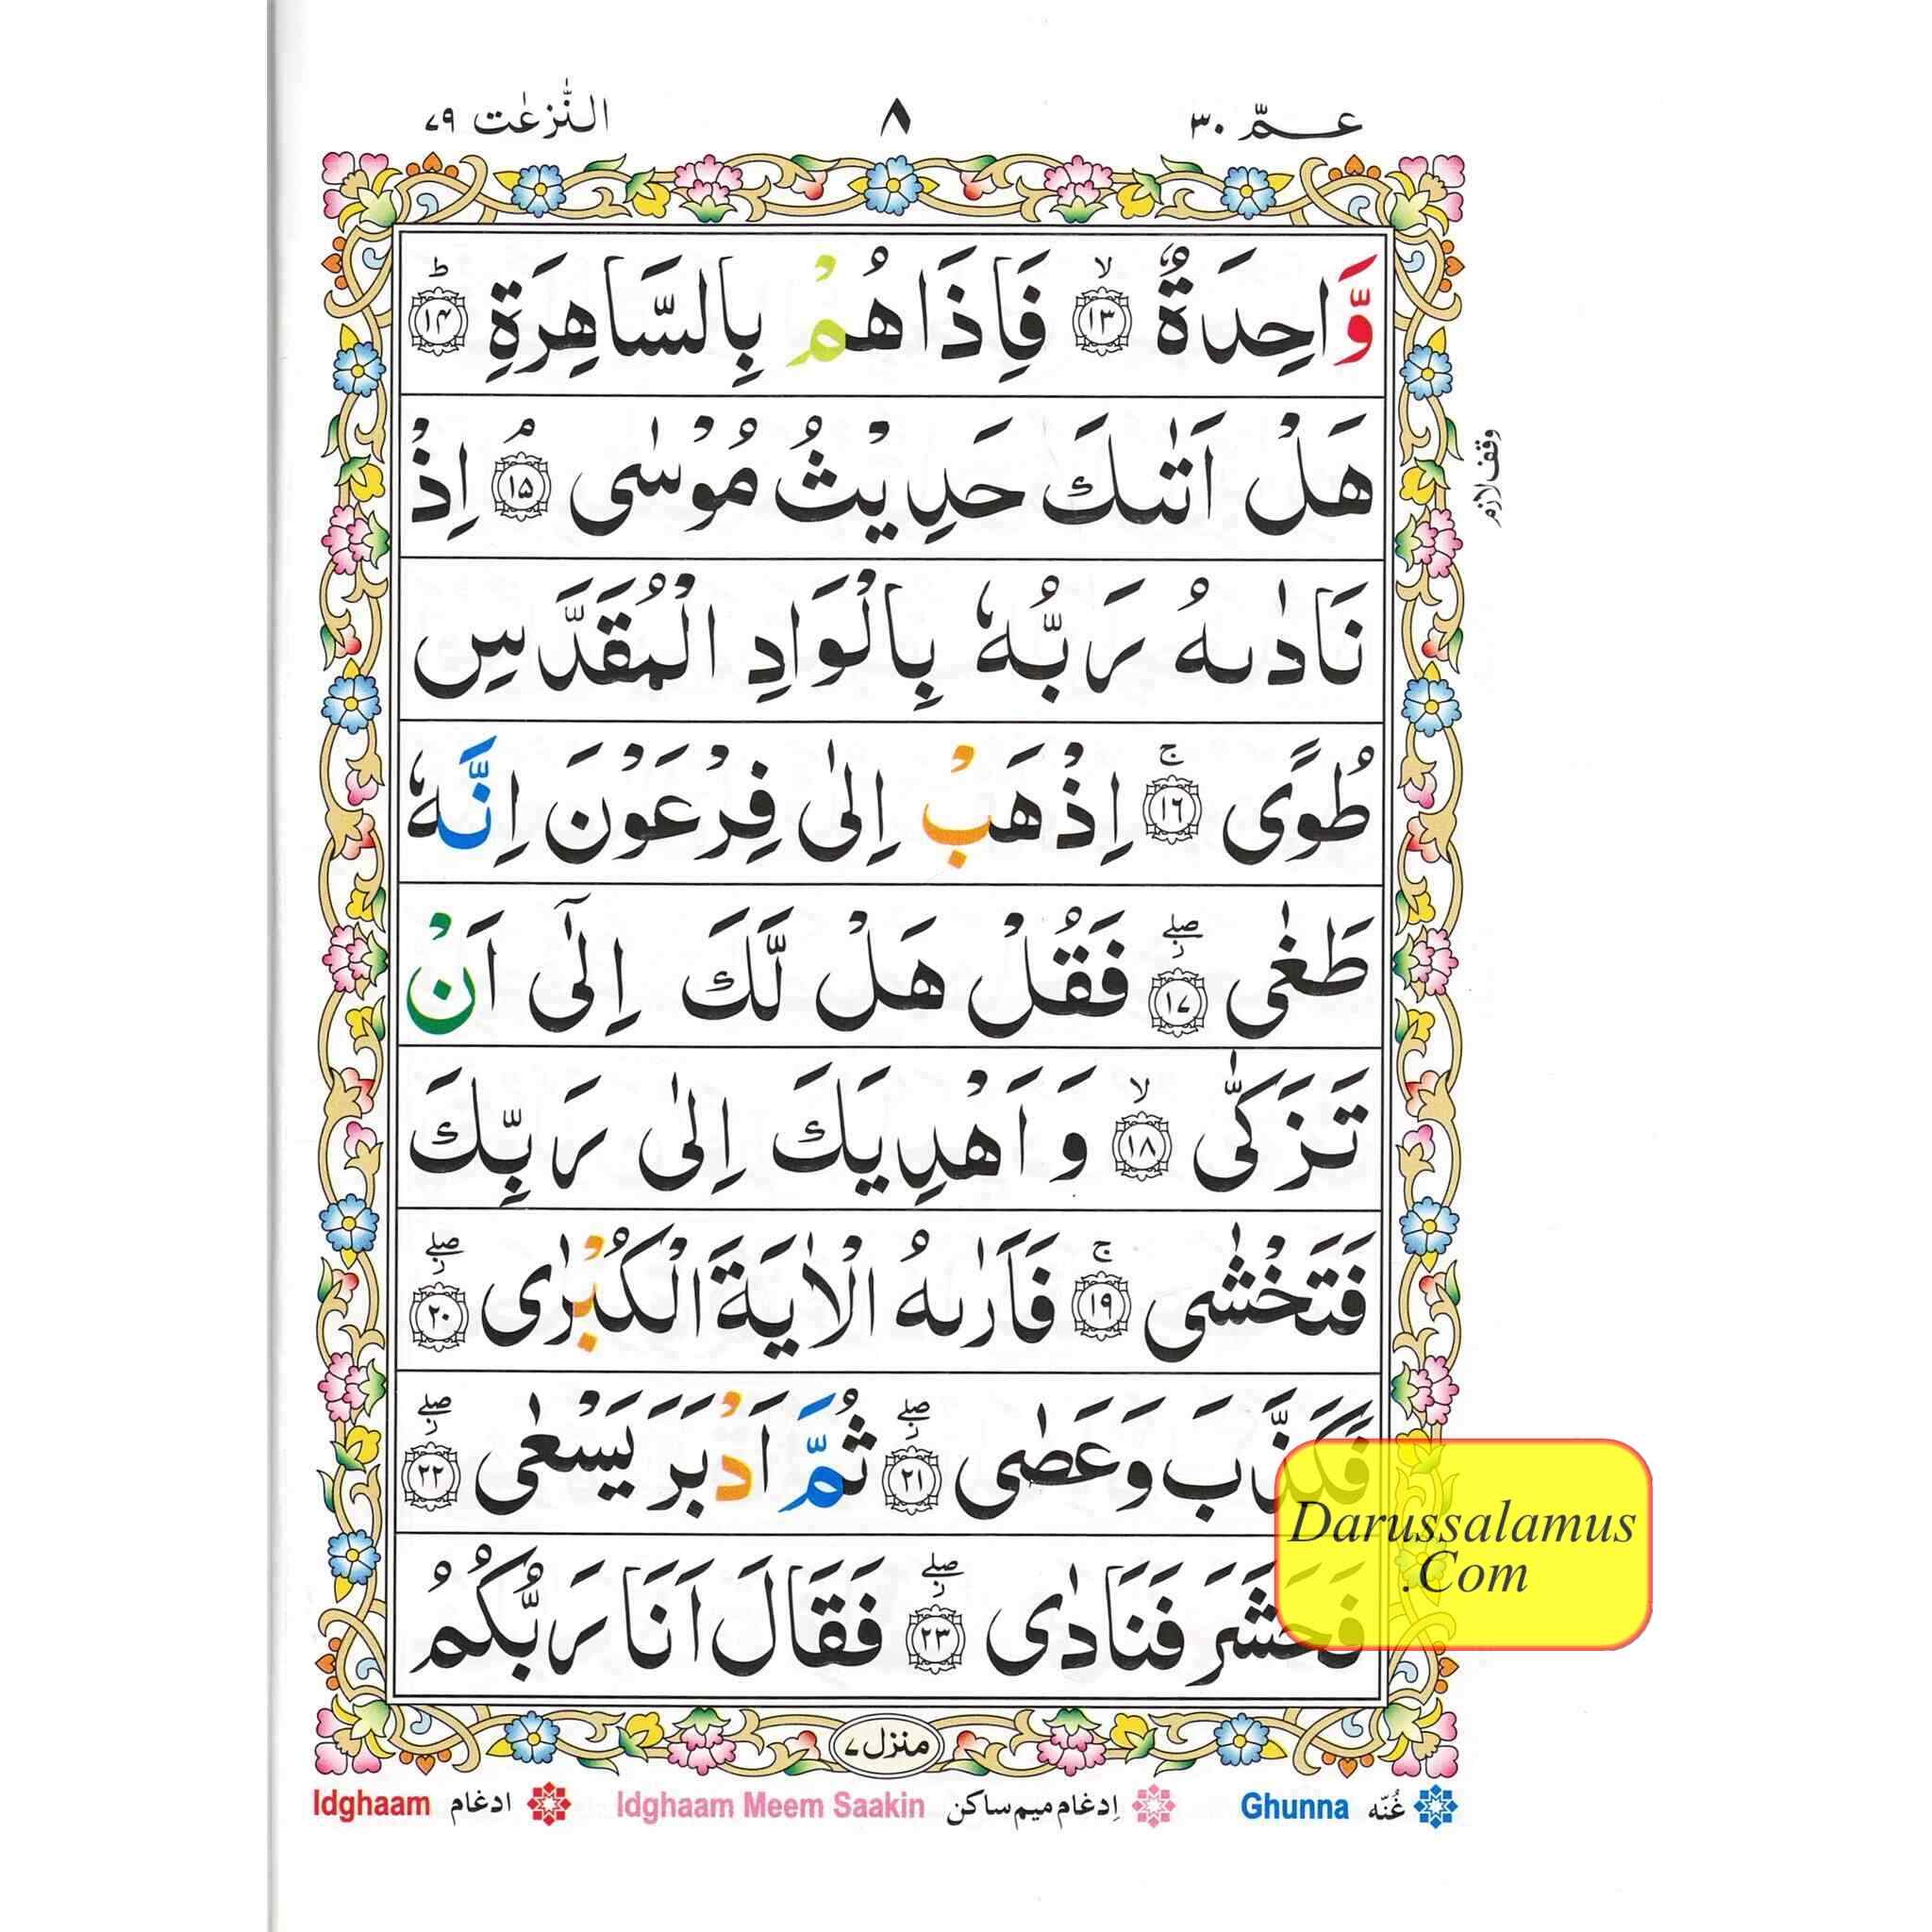 عـمّ ٣٠ ٨ النّٰزعٰت ٧٩
وَّاحِدَةٌ ۙ﴿١٣﴾ فَاِذَا هُمْ بِالسَّاهِرَةِ ؕ﴿١٤﴾
هَلْ اَتٰىكَ حَدِيْثُ مُوْسٰى ۘ﴿١٥﴾ اِذْ
وقف لازم
نَادٰىهُ رَبُّهٗ بِالْوَادِ الْمُقَدَّسِ
طُوًى ۚ﴿١٦﴾ اِذْهَبْ اِلٰى فِرْعَوْنَ اِنَّهٗ
طَغٰى ۖ﴿١٧﴾ فَقُلْ هَلْ لَّكَ اِلٰٓى اَنْ
تَزَكّٰى ۙ﴿١٨﴾ وَاَهْدِيَكَ اِلٰى رَبِّكَ
فَتَخْشٰى ۚ﴿١٩﴾ فَاَرٰىهُ الْاٰيَةَ الْكُبْرٰى ۖ﴿٢٠﴾
فَكَذَّبَ وَعَصٰى ۖ﴿٢١﴾ ثُمَّ اَدْبَرَ يَسْعٰى ۖ﴿٢٢﴾
فَحَشَرَ فَنَادٰى ۖ﴿٢٣﴾ فَقَالَ اَنَا رَبُّكُمُ
Darussalamus
.Com
منزل ٧
Idghaam ادغام Idghaam Meem Saakin اِدغام میم ساکن Ghunna غُنّه